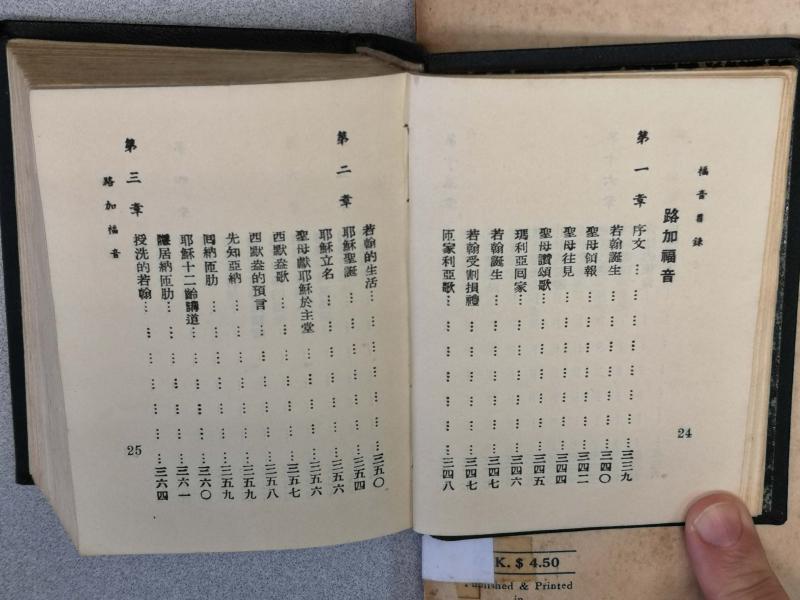 福音目錄
路加福音
第一章
序文 … … … … … … … 三三九
若翰誕生 … … … … … … 三四〇
聖母領報 … … … … … … 三四二
聖母往見 … … … … … … 三四四
聖母讚頌歌 … … … … … … 三四五
瑪利亞回家 … … … … … … 三四六
若翰誕生 … … … … … … 三四七
若翰受割損禮 … … … … … 三四七
匝家利亞歌 … … … … … … 三四八
24
若翰的生活 … … … … … … 三五〇
第二章
耶穌聖誕 … … … … … … 三五四
耶穌立名 … … … … … … 三五六
聖母獻耶穌於主堂 … … … … 三五七
西默盎歌 … … … … … … 三五八
西默盎的預言 … … … … … 三五九
先知亞納 … … … … … … 三五九
回納匝肋 … … … … … … 三六〇
耶穌十二齡講道 … … … … … 三六一
隱居納匝肋 … … … … … …
第三章
授洗的若翰 … … … … … … 三六四
路加福音
25
K. $ 4.50
Published & Printed
in